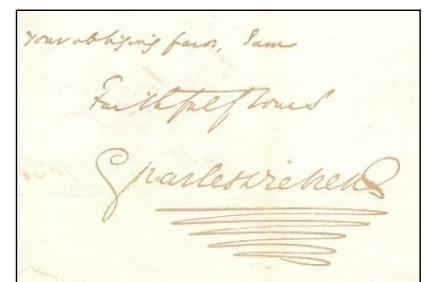 your obliging favor, I am
Faithfully Yours
Charles Dickens